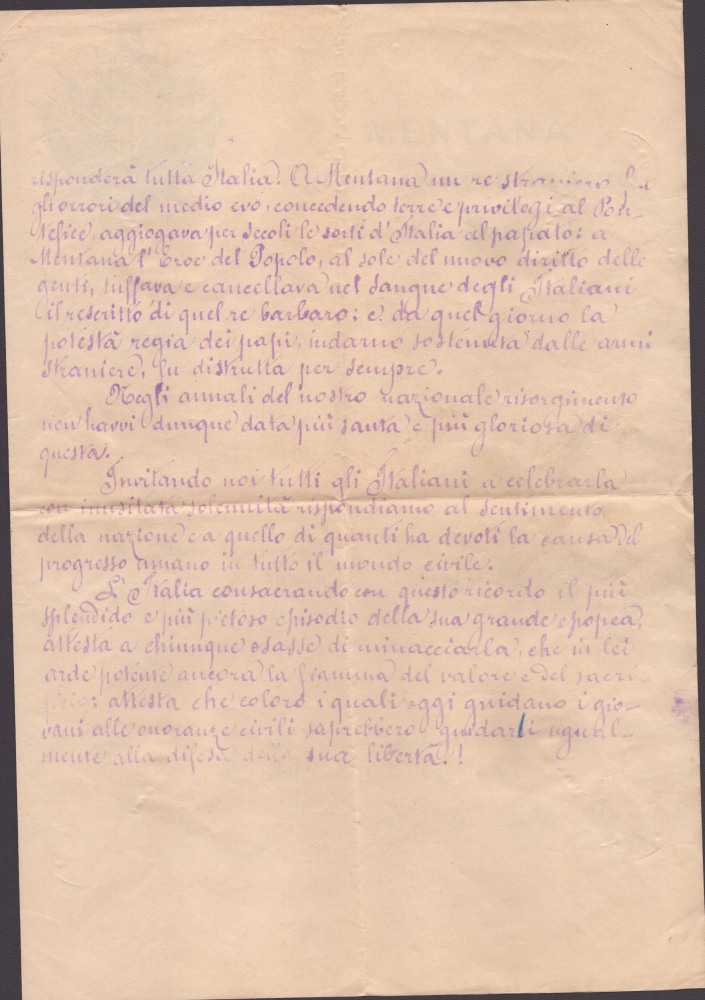 risponderà tutta Italia. A Mentana un re straniero fra
gli orrori del medio evo, concedendo terre e privilegi al Pon-
tefice, aggiogava per secoli le sorti d'Italia al papato: a
Mentana l'Eroe del Popolo, al sole del nuovo diritto delle
genti, tuffava e cancellava nel sangue degli Italiani
il rescritto di quel re barbaro: e da quel giorno la
potestà regia dei papi, indarno sostenuta dalle armi
straniere, fu distrutta per sempre.
Negli annali del nostro nazionale risorgimento
non havvi dunque data più santa e più gloriosa di
questa.
Invitando noi tutti gli Italiani a celebrarla
con inusitata solennità rispondiamo al sentimento
della nazione e a quello di quanti ha devoti la causa del
progresso umano in tutto il mondo civile.
L'Italia consacrando con questo ricordo il più
splendido e più pietoso episodio della sua grande epopea,
attesta a chiunque osasse di minacciarla, che in lei
arde potente ancora la fiamma del valore e del sacri-
ficio: attesta che coloro i quali oggi guidano i gio-
vani alle onoranze civili saprebbero guidarli ugual-
mente alla difesa della sua libertà!
MENTANA